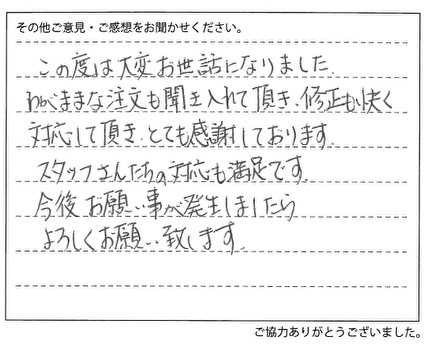 その他ご意見・ご感想をお聞かせください。
この度は大変お世話になりました.
わがままな注文も聞き入れて頂き、修正も快く
対応して頂き、とても感謝しております.
スタッフさんたちの対応も満足です.
今後お願い事が発生しましたら
よろしくお願い致します.
ご協力ありがとうございました。